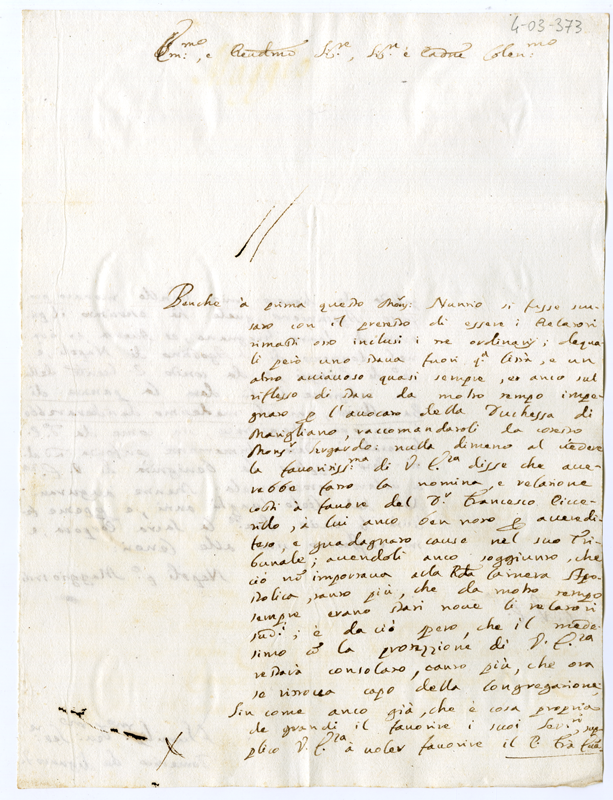 4-03-373
Em:mo, e Reudmo Sig.re, Sig.re e Padne Colen:mo
Benche à prima questo Mons: Nunzio si fusse scu-
sato con il pretesto di essere i Relatori
rimasti otto inclusi i tre ordinarij; de qua-
li però uno stava fuori q.a Città, e un
altro acciacoso quasi sempre, et anco sul
riflesso di stare da molto tempo impe-
gnato p l'avocato della Duchessa di
Marigliano, raccomandatoli da cotesto
Mons:r nulla dimeno al vedere
la favoritiss:ma di V. E.za disse che aue-
rebbe fatto la nomina, e relazione
costì à favore del D.r Francesco Cicce-
rello, à lui anco ben noto p auerdi-
feso, e guadagnato cause nel suo Tri-
bunale; auendoli anco soggiunto, che
ciò nō importaua alla Rda Camera Apo-
stolica, tanto più, che da molto tempo
sempre erano stati noue li relatori
sudi: i è da ciò spero, che il mede-
simo cō la protezzione di V. E.za
restarà consolato, tanto più, che ora
se ritroua capo della Congregazione
Sin come anco già, che è cosa propria
de grandi il favorire i suoi Seri:ri sup-
plico V. E.za à voler favorire il P. Frà